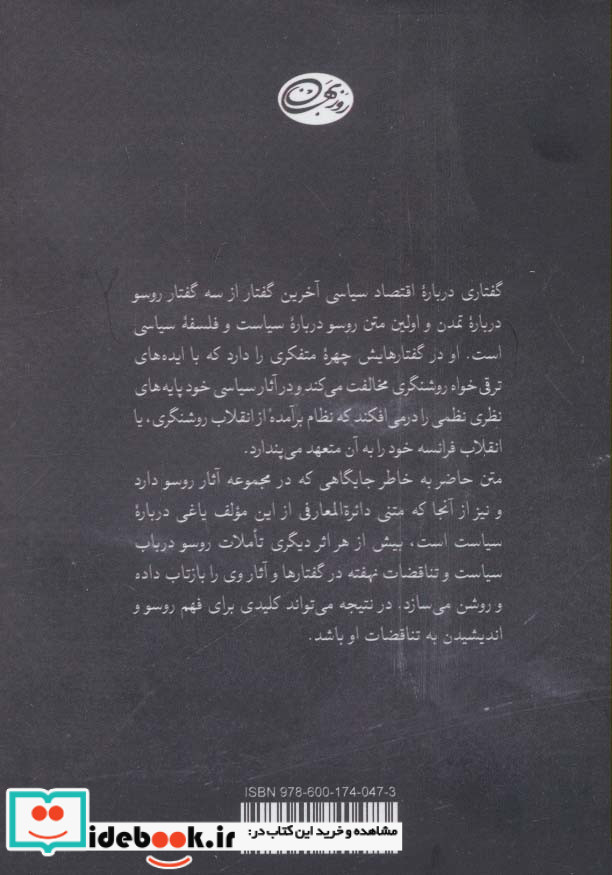 روزبهان
گفتاری دربارهٔ اقتصاد سیاسی آخرین گفتار از سه گفتار روسو
دربارهٔ تمدن و اولین متن روسو دربارهٔ سیاست و فلسفهٔ سیاسی
است. او در گفتارهایش چهرهٔ متفکری را دارد که با ایده‌های
ترقی‌خواه روشنگری مخالفت می‌کند و در آثار سیاسی خود پایه‌های
نظری نظمی را درمی‌افکند که نظام برآمدهٔ از انقلاب روشنگری، یا
انقلاب فرانسه خود را به آن متعهد می‌پندارد.
متن حاضر به خاطر جایگاهی که در مجموعه آثار روسو دارد
و نیز از آنجا که متنی دائرةالمعارفی از این مؤلف یاغی دربارهٔ
سیاست است، بیش از هر اثر دیگری تأملات روسو درباب
سیاست و تناقضات نهفته در گفتارها و آثار وی را بازتاب داده
و روشن می‌سازد. در نتیجه می‌تواند کلیدی برای فهم روسو و
اندیشیدن به تناقضات او باشد.
ISBN 978-600-174-047-3
مشاهده و خرید این کتاب در:
idebook.ir